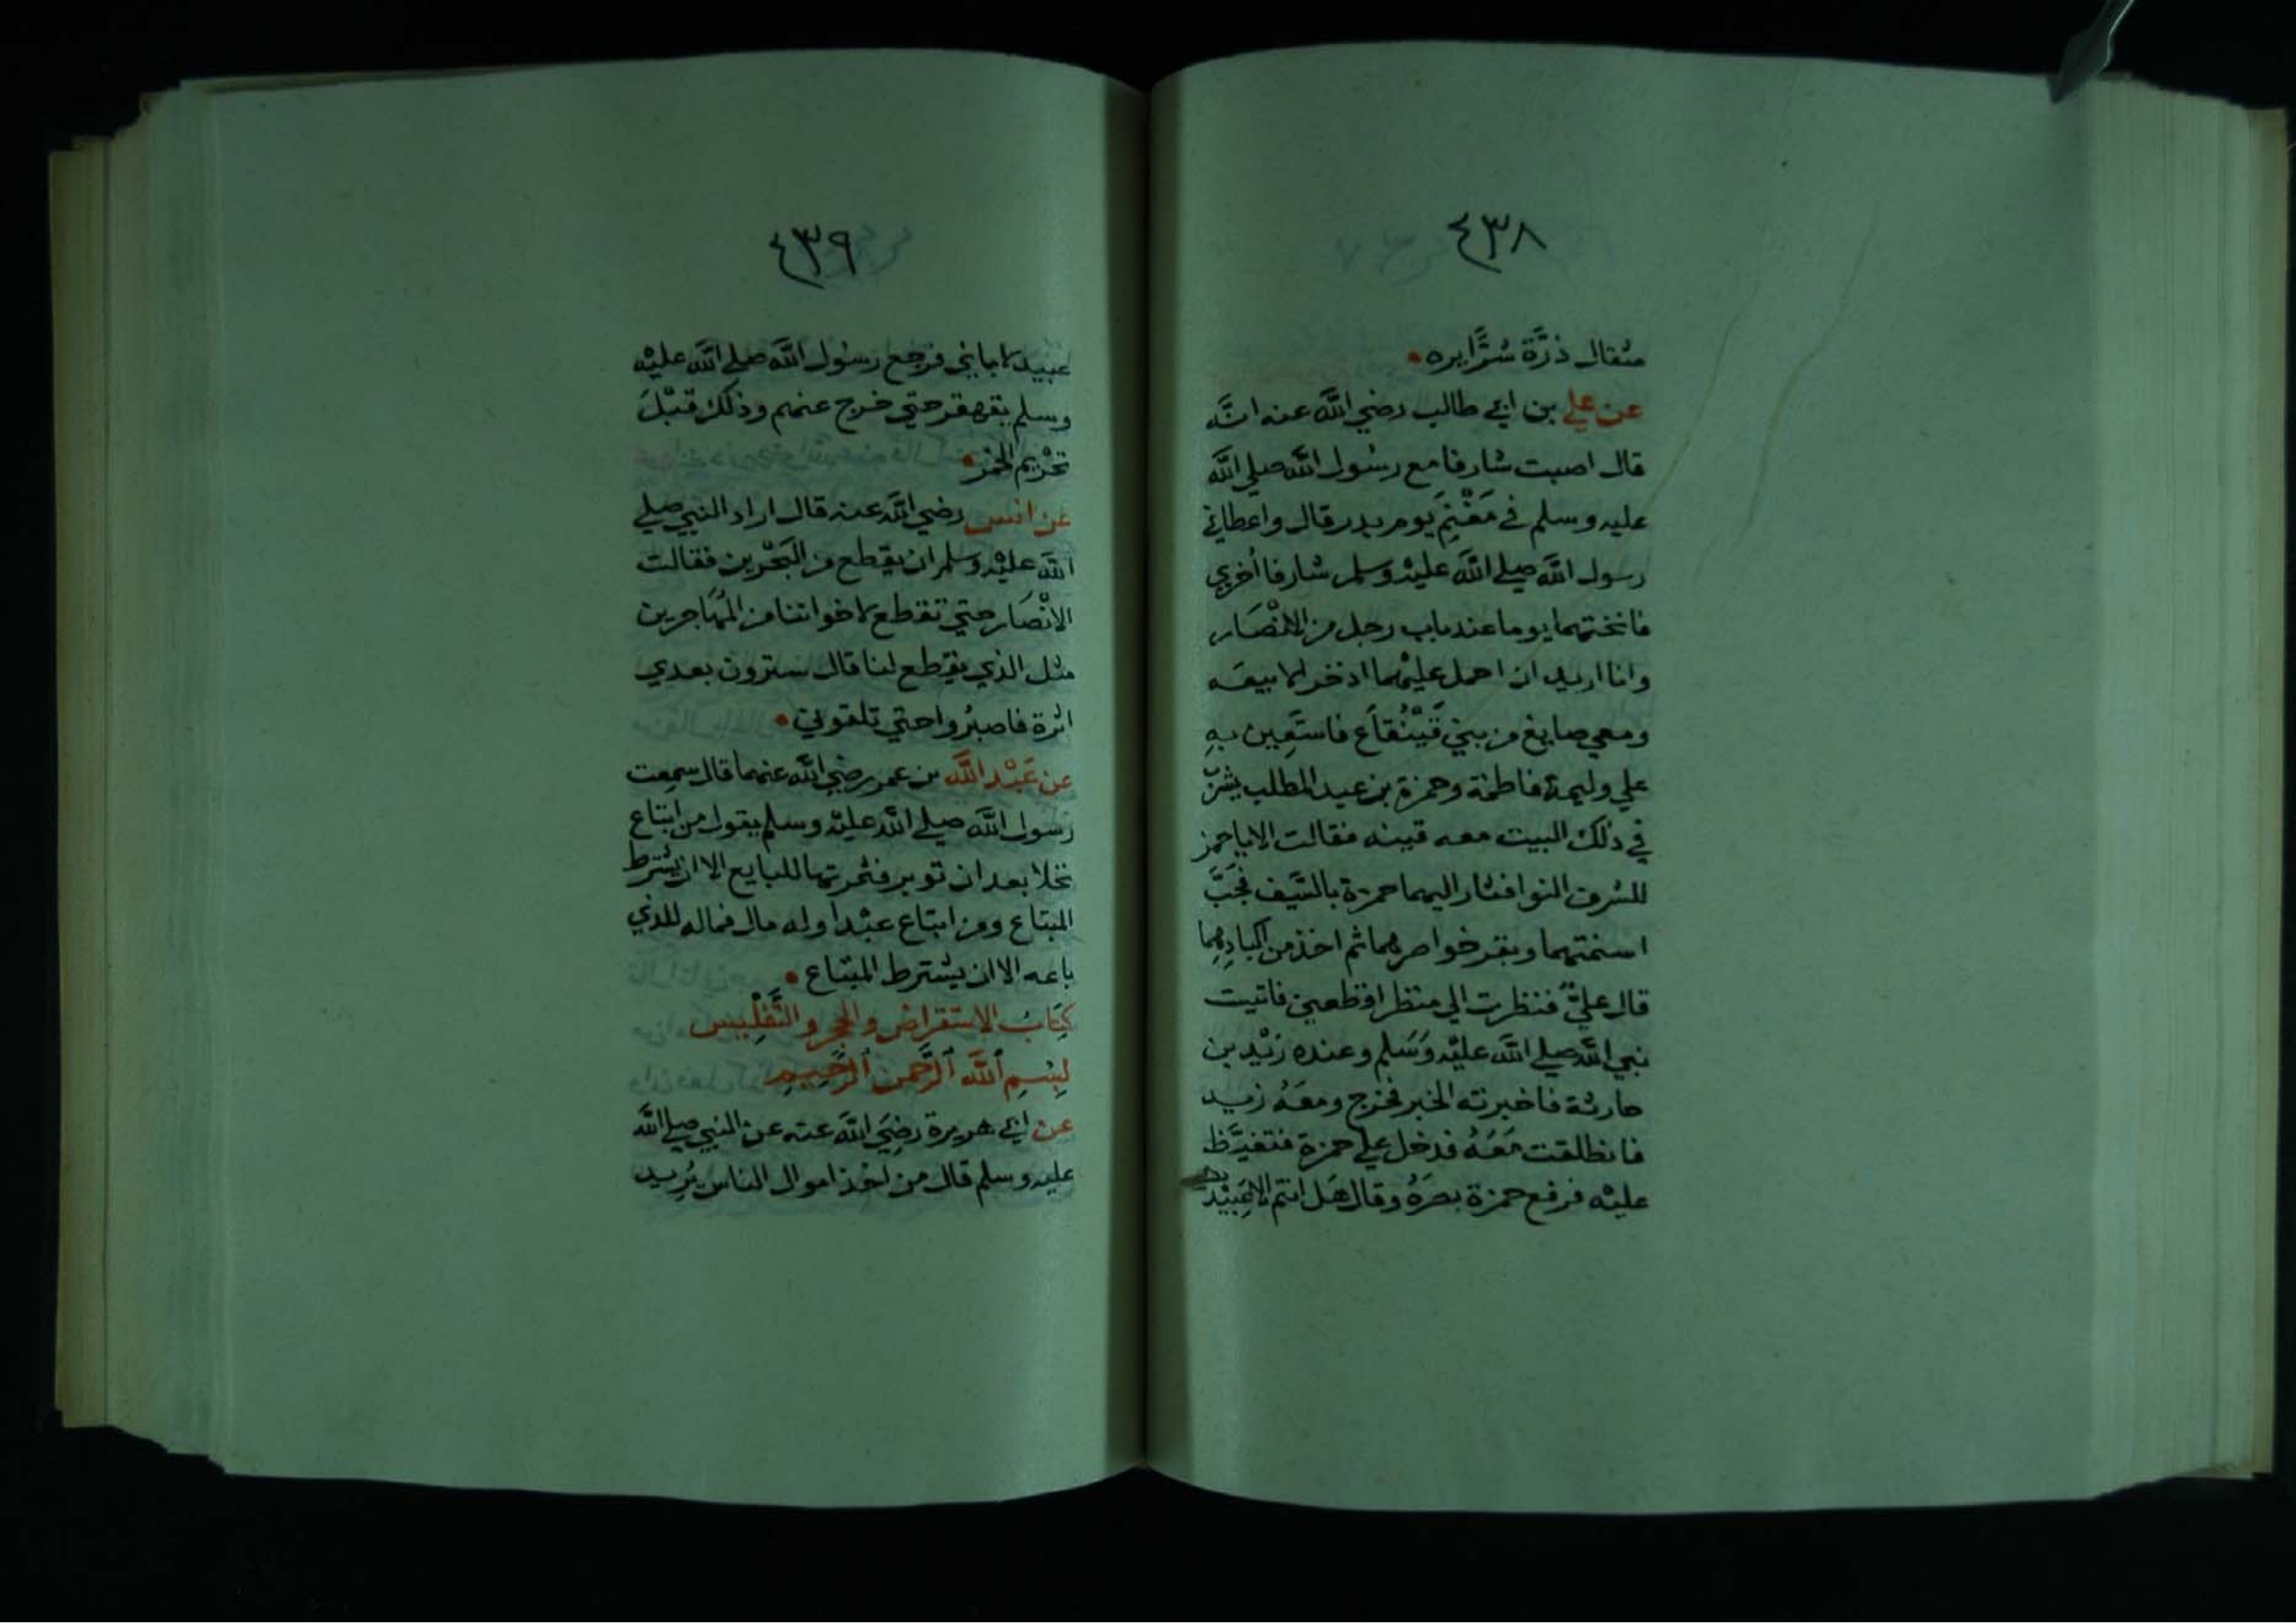 ٤٣٨
مثقال ذرَّة شرًّا يره
عن علي بن ابي طالب رضي الله عنه انه
قال اصبت شارفا مع رسول الله صلي الله
عليه وسلم في مَغْنَمِ يوم بدر قال واعطاني
رسول الله صلي الله عليه وسلم شارفا أخري
فانختهما يوما عند باب رجل من الانصار
وانا اريد ان احمل عليهما اذخر الابيعه
ومعي صايغ من بني قَيْنُقَاع فاستَعِين بهِ
علي وليمة فاطمة وحمزة بن عبد المطلب يشرب
في ذلك البيت معه قينه فقالت الا يا حمز
للشرف النوا فثار اليهما حمزة بالسَّيف فجَبَّ
اسنمتهما وبقر خواصرهما ثم اخذ من اكبادِهِما
قال عليٌّ فنظرت الي منظر افظعني فاتيت
نبي الله صلي الله عليْه وَسَلم وعنده زيْد بن
حارثة فاخبرته الخبر فخرج ومعَهُ زيد
فانطلقت مَعَهُ فدخل علي حمزة فتغيَّظ
عليْه فرفع حمزة بصَرَهُ وقال هَل انتم الا عَبِيْد
٤٣٩
عبيد لابايي فرجع رسول الله صلي الله عليْه
وسلم يقهقر حتي خرج عنهم وذلك قبْلَ
تحْريم الخمر
عن انس رضي الله عنه قال اراد النبي صلي
الله عليْه وسلم ان يقطع من البَحْرين فقالت
الانْصَار حتي تقطع لاخواننا من المهَاجرين
مثل الذي يقطع لنا قال سترون بعدي
اثرة فاصبرُوا حتي تلقوني
عن عَبْد الله بن عمر رضي الله عنهما قال سمعت
رسول الله صلي الله عليه وسلم يقول من ابتاع
نخلا بعد ان توبر فثمرتها للبايع الا ان يشترط
المبتاع ومن ابتاع عبْدا وله مال فماله للذي
باعه الا ان يشترط المبتاع
كِتَابُ الاستقراض والحجر والتَّفْلِيس
بِسْمِ اللَّه الرَّحمن الرَّحِيمِ
عن ابي هريرة رضِيَ الله عنه عن النبي صلي الله
عليه وسلم قال من اخذ اموال الناس يُريد